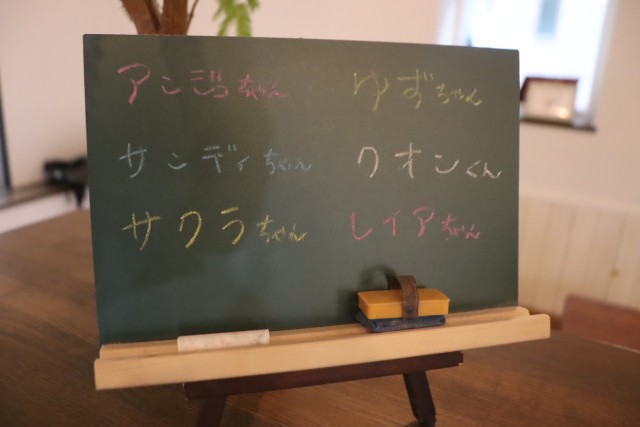 アンジュちゃん ゆずちゃん
サンディちゃん クオンくん
サクラちゃん レイアちゃん